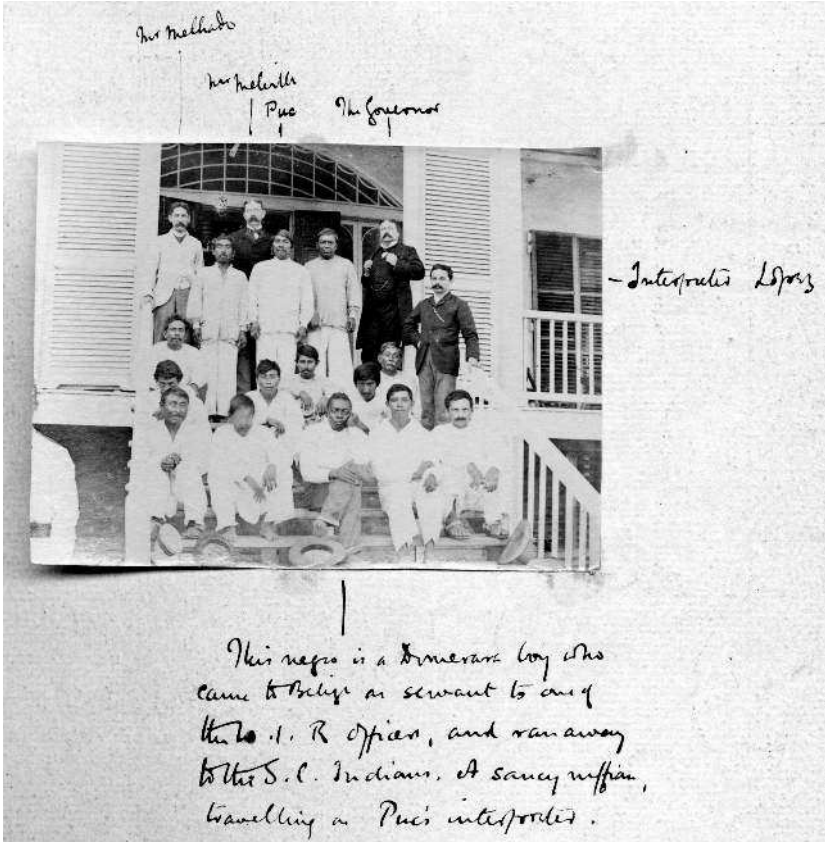 Mr Melhado
Mr Melville
Puc The Governor
- Interpreter Lopez
This negro is a Demerara boy who
came to Belize as servant to one of
the W. I. R officers, and ran away
to the S. C. Indians. A saucy ruffian,
travelling as Puc's interpreter.